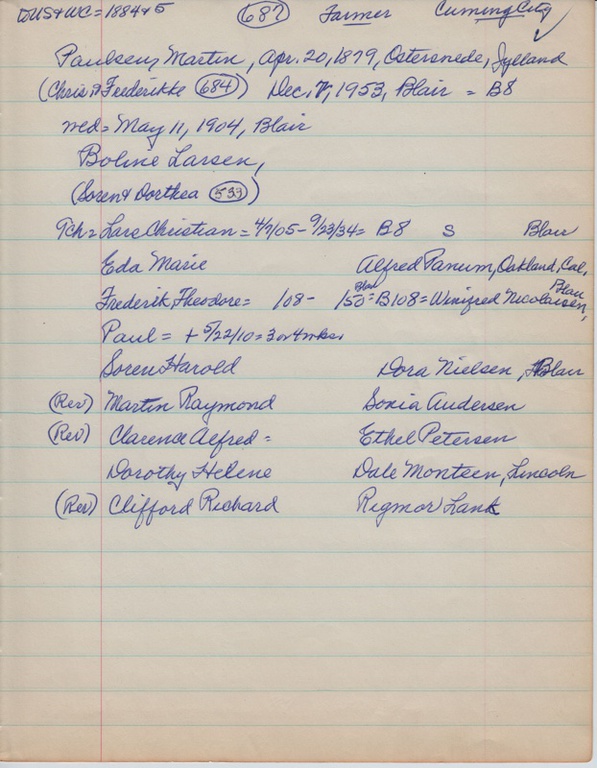 DUS & WC = 1884 & 5 (687) Farmer Cuming City ✓
Paulsen, Martin, Apr. 20, 1879, Ostersnede, Jylland
(Chris & Frederikke (684)) Dec. 7, 1953, Blair = B8
md = May 11, 1904, Blair
Boline Larsen,
(Soren & Dorthea (533))
Tch = Lars Christian = 4/7/05 - 9/23/34 = B8 S Blair
Eda Marie Alfred Panum, Oakland, Cal.
Frederik Theodore = /08 - /50 = Blair B108 = Winifred Nicolaisen, Blair
Paul = + 5/22/10 = 3 or 4 wks.
Soren Harold Dora Nielsen, Blair
(Rev) Martin Raymond Sonia Andersen
(Rev) Clarence Alfred = Ethel Petersen
Dorothy Helene Dale Monteen, Lincoln
(Rev) Clifford Richard Rigmor Lank